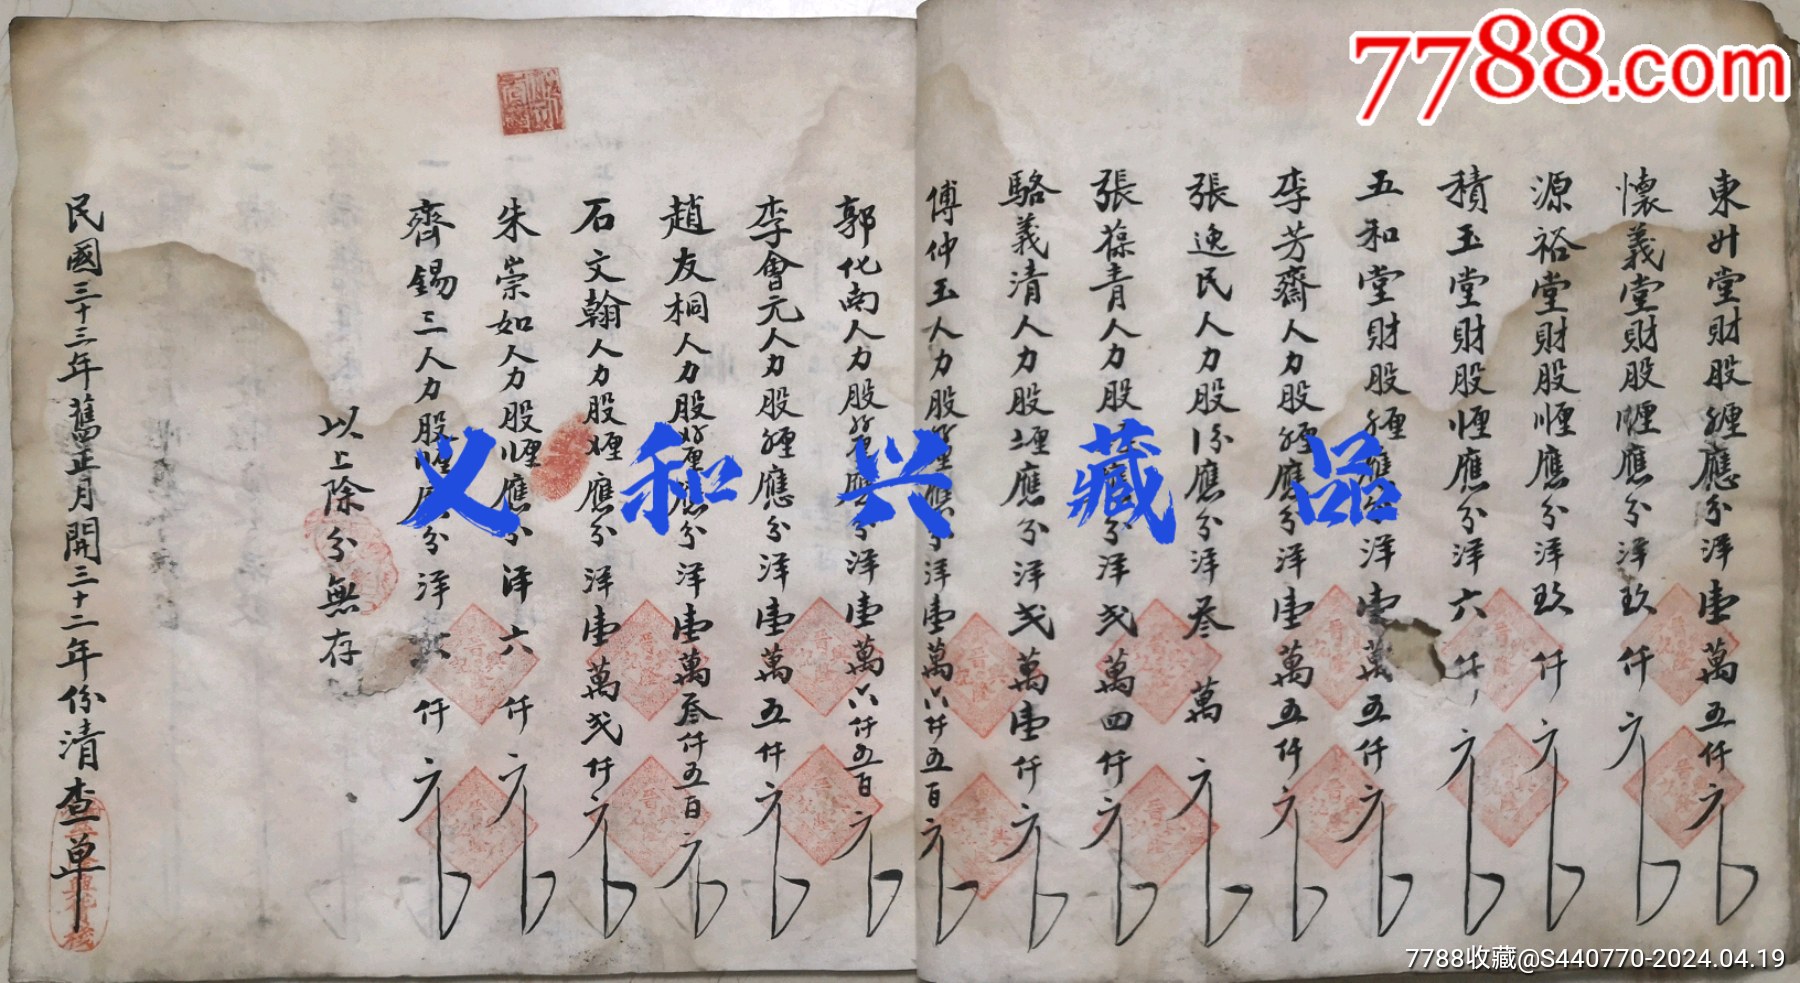 7788.com
東廾堂財股㕓應分洋壹萬五仟元
懷義堂財股厘應分洋玖仟元
源裕堂財股厘應分洋玖仟元
積玉堂財股厘應分洋六仟元
五和堂財股厘應分洋壹萬五仟元
李芳齋人力股厘應分洋壹萬五仟元
張逸民人力股份應分洋叁萬元
張葆青人力股應分洋弍萬四仟元
駱義清人力股厘應分洋弍萬壹仟元
傅仲玉人力股厘應分洋壹萬六仟五百元
郭化南人力股厘應分洋壹萬六仟五百元
李會元人力股厘應分洋壹萬五仟元
趙友桐人力股厘應分洋壹萬叁仟五百元
石文翰人力股厘應分洋壹萬弍仟元
朱崇如人力股厘應分洋六仟元
齊錫三人力股厘應分洋六仟元
以上除分無存
民國三十三年舊正月開三十二年份清查单
义和兴藏品
7788收藏@S440770-2024.04.19